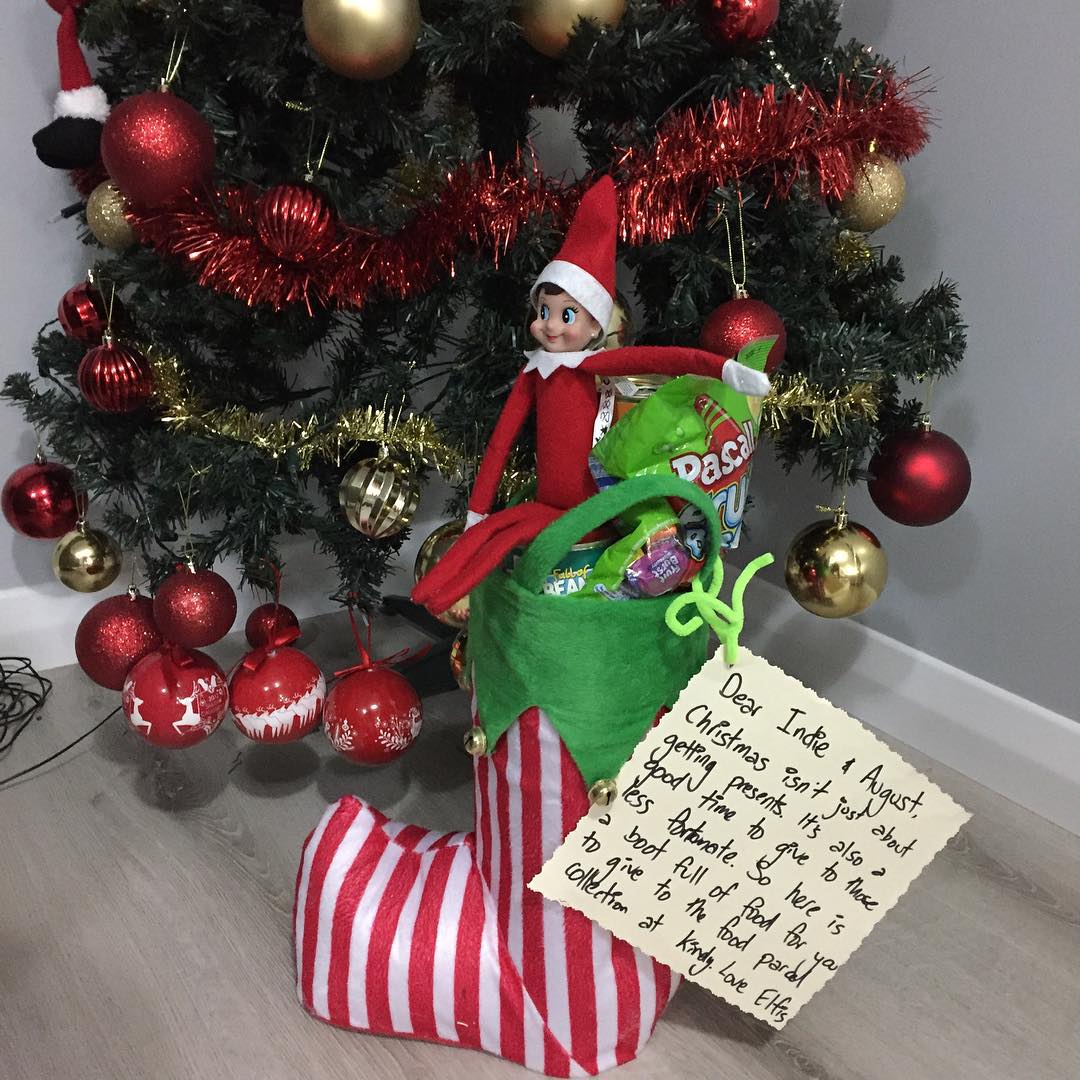 Pascall
Fabbof
BEAN
Fruit
Burst
Dear Indie & August,
Christmas isn't just about
getting presents. It's also a
good time to give to those
less fortunate. So here is
a boot full of food for you
to give to the food parcel
collection at kindy. Love Elfis